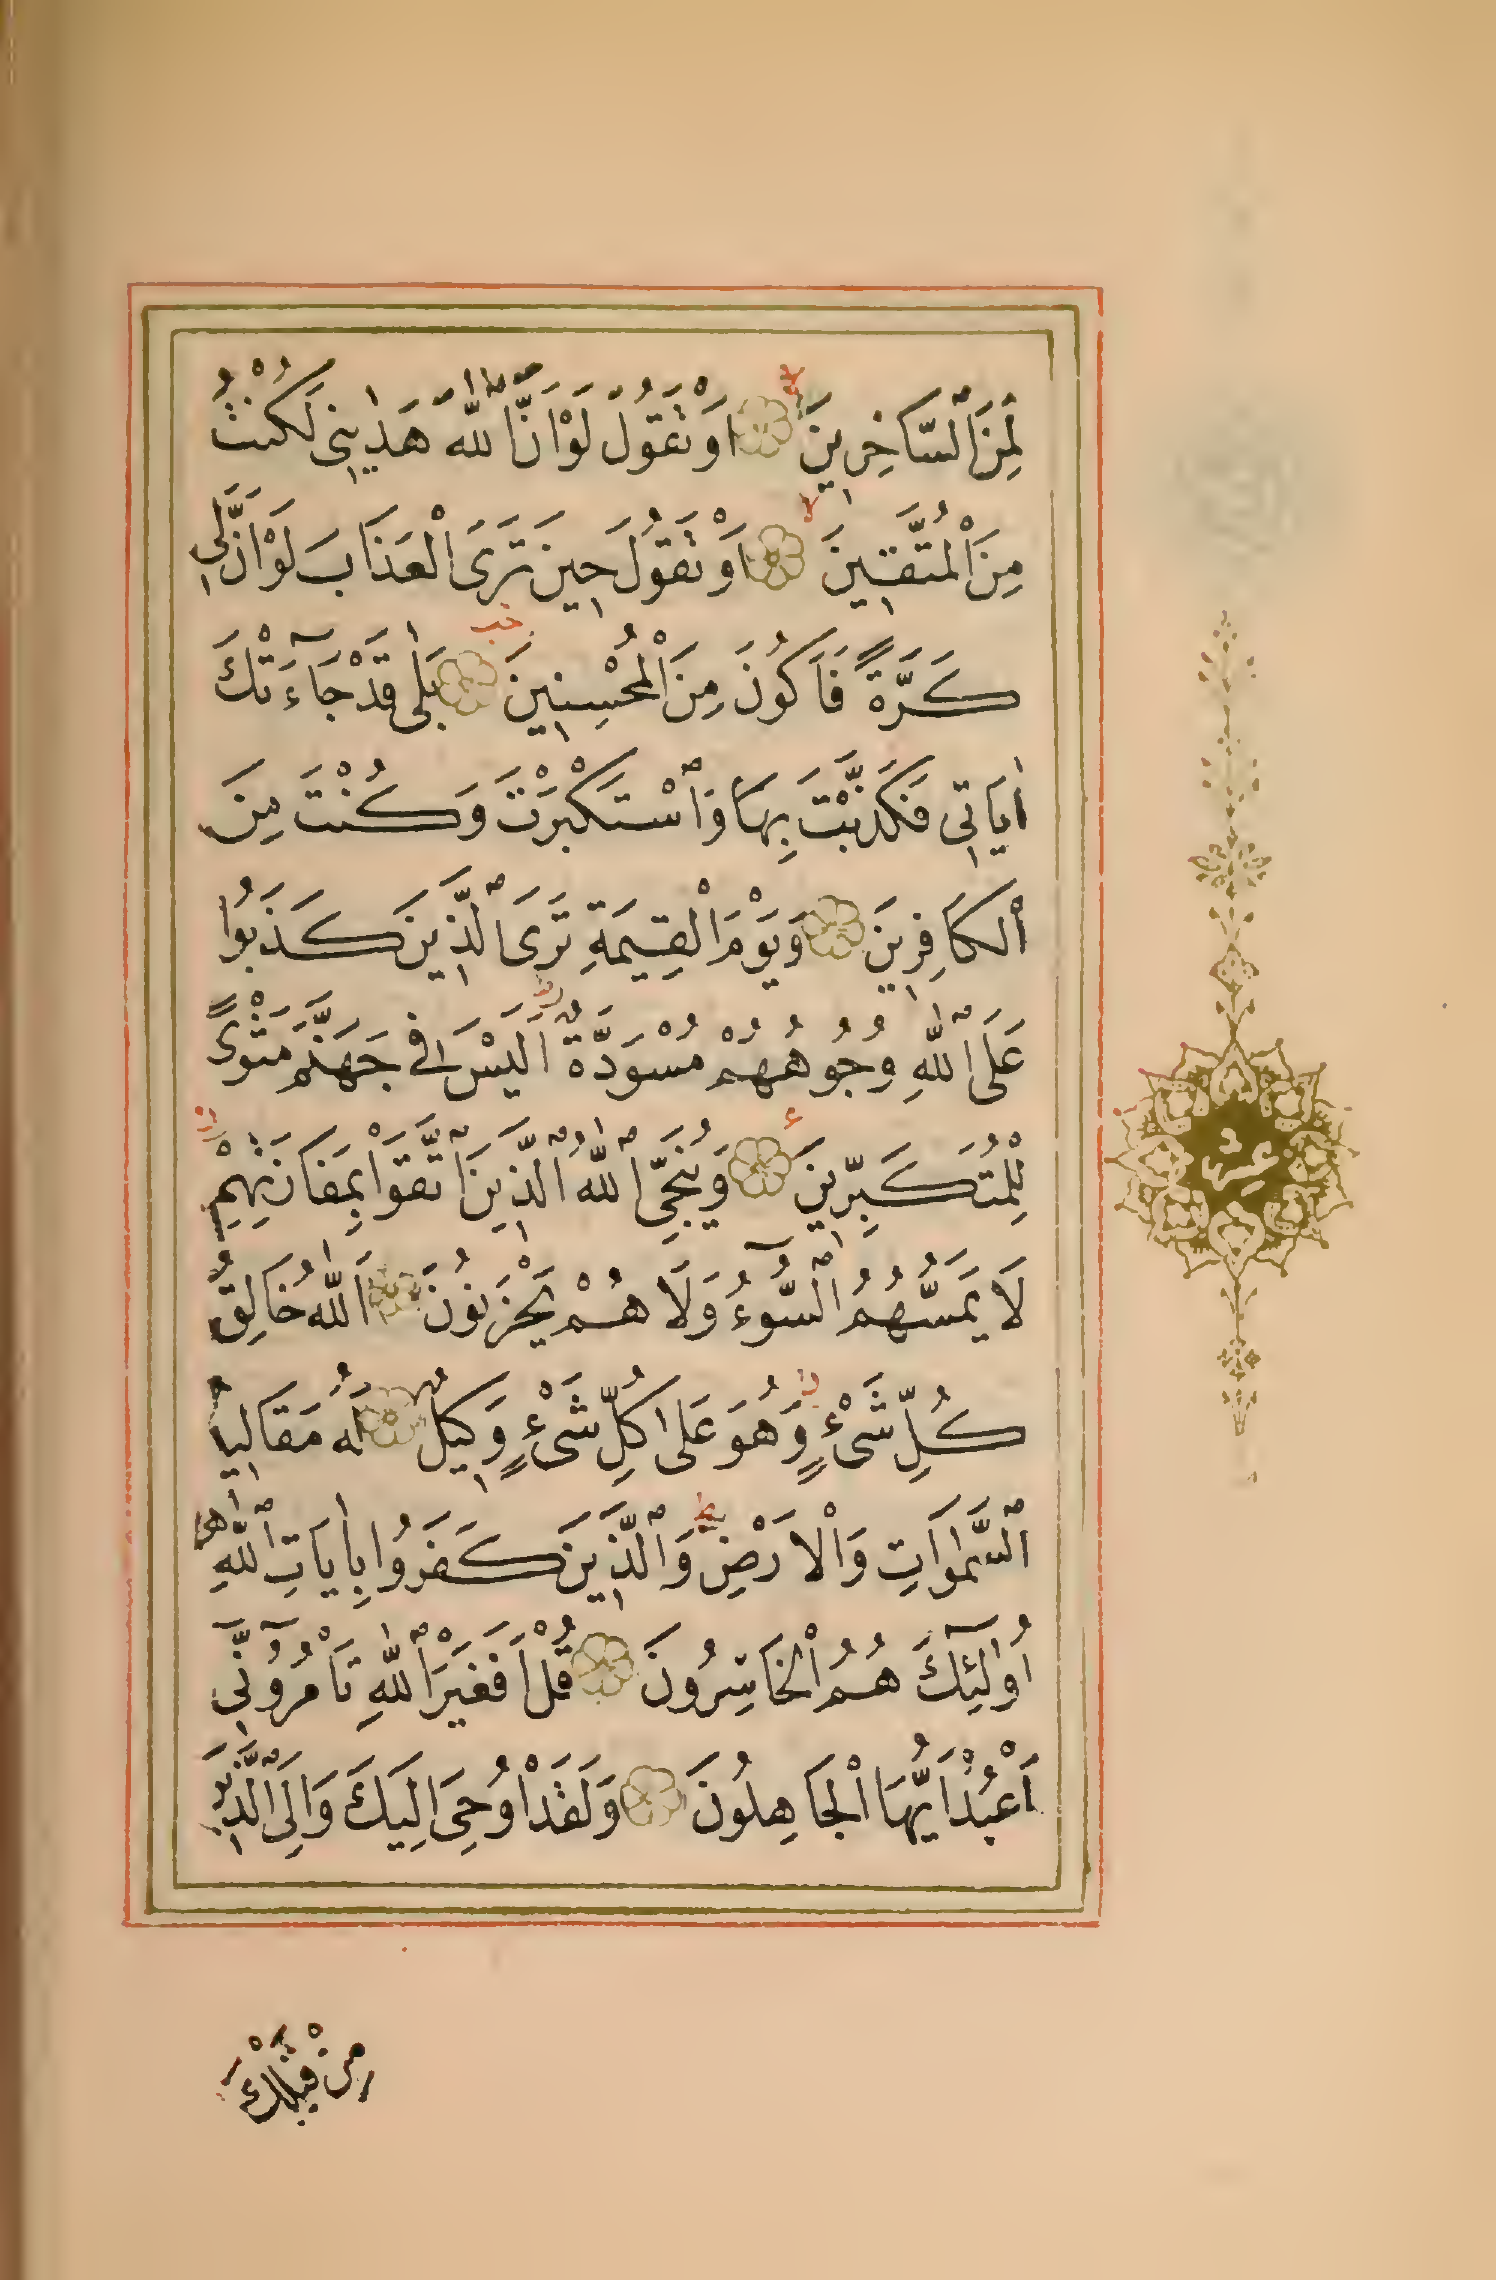 لَمِنَ ٱلسَّاخِرِينَ اَوْ تَقُولَ لَوْ اَنَّ ٱللّٰهَ هَدٰينِى لَكُنْتُ
مِنَ الْمُتَّقِينَ اَوْ تَقُولَ حِينَ تَرَى الْعَذَابَ لَوْ اَنَّ لِى
كَرَّةً فَاَكُونَ مِنَ الْمُحْسِنِينَ بَلٰى قَدْ جَآءَتْكَ
اٰيَاتِى فَكَذَّبْتَ بِهَا وَٱسْتَكْبَرْتَ وَكُنْتَ مِنَ
الْكَافِرِينَ وَيَوْمَ الْقِيٰمَةِ تَرَى ٱلَّذِينَ كَذَبُوا
عَلَى ٱللّٰهِ وُجُوهُهُمْ مُسْوَدَّةٌ اَلَيْسَ فِى جَهَنَّمَ مَثْوًى
لِلْمُتَكَبِّرِينَ وَيُنَجِّى ٱللّٰهُ ٱلَّذِينَ ٱتَّقَوْا بِمَفَازَتِهِمْ
لَا يَمَسُّهُمُ ٱلسُّوٓءُ وَلَا هُمْ يَحْزَنُونَ اَللّٰهُ خَالِقُ
كُلِّ شَىْءٍ وَهُوَ عَلٰى كُلِّ شَىْءٍ وَكِيلٌ لَهُ مَقَالِيدُ
ٱلسَّمٰوَاتِ وَالْاَرْضِ وَٱلَّذِينَ كَفَرُوا بِاٰيَاتِ ٱللّٰهِ
اُولٰٓئِكَ هُمُ الْخَاسِرُونَ قُلْ اَفَغَيْرَ ٱللّٰهِ تَأْمُرُوٓنِّى
اَعْبُدُ اَيُّهَا الْجَاهِلُونَ وَلَقَدْ اُوحِىَ اِلَيْكَ وَاِلَى ٱلَّذِينَ
مِنْ قَبْلِكَ